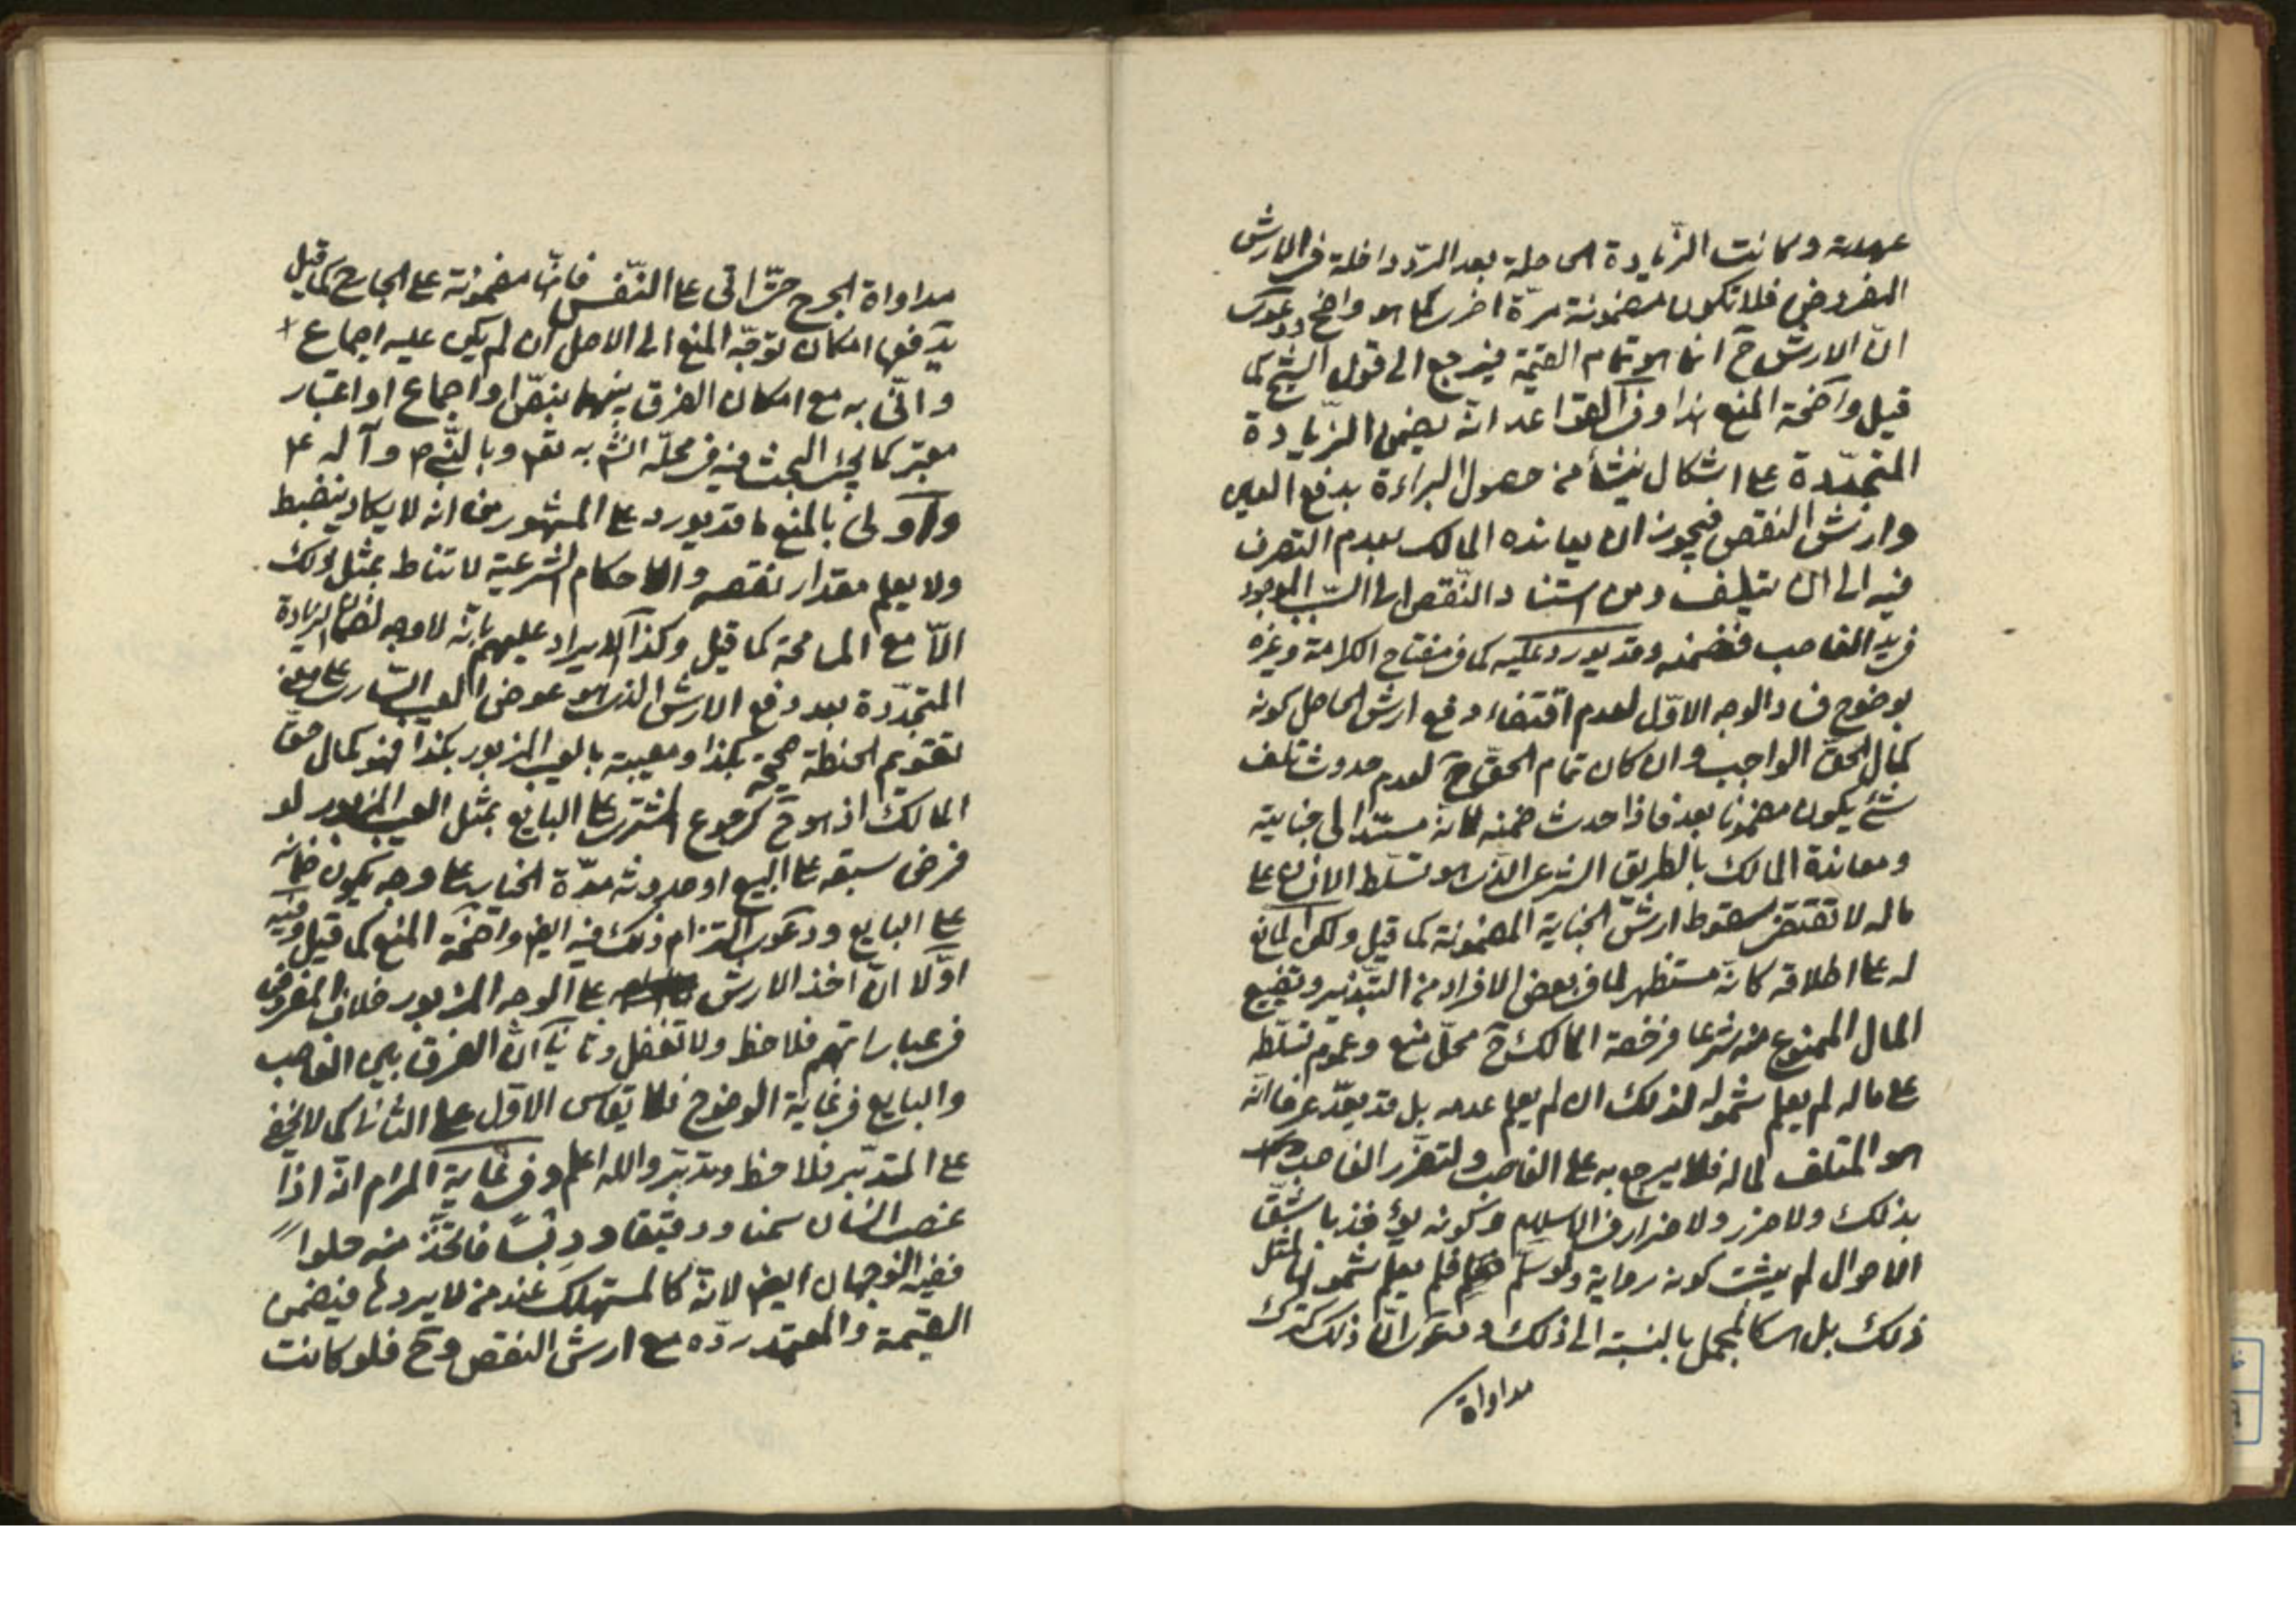 عهدته وكانت الزّيادة الحاصلة بعد الردّ داخلة في الارش
المفروض فلا تكون مضمونة مرّة اخرى كما هو واضح ودعوى
انّ الارش ح انما هو تمام القيمة فيرجع الى قول الشيخ كما
قيل واضحة المنع هذا وفي القواعد انّه يضمن الزّيادة
المتجدّدة على اشكال ينشأ من حصول البراءة بدفع العين
وارش النقص فيجوز ان يعانده المالك بعدم التصرف
فيه الى ان يتلف ومن استناد النّقص الى السّبب الموجود
في يد الغاصب فضمنه وقد يورد عليه كما في مفتاح الكرامة وغيره
بوضوح فساد الوجه الاوّل لعدم اقتضاء دفع ارش الحاصل كونه
كمال الحقّ الواجب وان كان تمام الحقّ ح لعدم حدوث تلف
شئ يكون مضمونا بعد فاذا حدث ضمنه لانّه مستندا الى جنايته
ومعاندة المالك بالطريق الشرعي الذي هو تسلّط الانسان على
ماله لا تقتضي سقوط ارش الجناية المضمونة كما قيل ولكن المانع
له على اطلاقه كانّه مستظهر لما في بعض الافراد من التّبذير وتضييع
المال الممنوع منه شرعا فرخصة المالك ح محلّ منع وعموم تسلّطه
على ماله لم يعلم شموله لذلك ان لم يعلم عدمه بل قد يعدّ عرفا انّه
هو المتلف لماله فلا يرجع به على الغاصب ولتضرّر الغاصب
بذلك ولا ضرر ولا ضرار في الاسلام وكونه يؤخذ باشقّ
الاحوال لم يثبت كونه رواية ولو سلّم فلم يعلم شمولها لمثل
ذلك بل هي كالمجمل بالنسبة الى ذلك ودعوى انّ ذلك كترك
مداواة
مداواة الجرح حتّى اتى على النّفس فانّها مضمونة على الجارح كما قيل
يدفعها امكان توجّه المنع الى الاصل ان لم يكن عليه اجماع
وانّى به مع امكان الفرق بينهما بنصّ او اجماع او اعتبار
معتبر كما يجئ البحث فيه في محلّه انش به تعم وبالنّبي ص وآله ع
واولى بالمنع ما قد يورد على المشهور من انه لا يكاد ينضبط
ولا يعلم مقدار نقصه والاحكام الشرعية لا تناط بمثل ذلك
الّا مع المسامحة كما قيل وكذا الايراد عليهم بانّه لا وجه لضمان الزيادة
المتجدّدة بعد دفع الارش الذي هو عوض العيب السّاري على معنى
تقويم الحنطة صحيحة بكذا ومعيبة بالعيب المزبور بكذا فهو كمال حقّ
المالك اذ هو ح كرجوع المشتري على البايع بمثل العيب المزبور لو
فرض سبقه على البيع او حدوثه مدّة الخيار على وجه يكون ضمانه
على البايع ودعوى التزام ذلك فيه ايض واضحة المنع كما قيل وفيه
اوّلا انّ اخذ الارش على الوجه المزبور خلاف المفروض
في عباراتهم فلاحظ ولا تغفل وثانيا انّ الفرق بين الغاصب
والبايع في غاية الوضوح فلا يقاس الاوّل على الثاني كما لا يخفى
على المتدبّر فلاحظ وتدبّر والله اعلم وفي غاية المرام انّه اذا
غصب انسان سمنا ودقيقا ودبسًا فاتّخذ منه حلواً
ففيه الوجهان ايض لانّه كالمستهلك عند من لا يردها فيضمن
القيمة والمعتمد ردّه مع ارش النقص وح فلو كانت